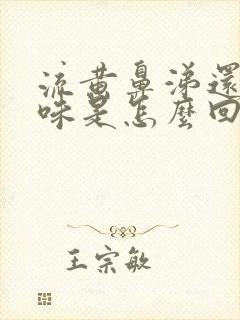 流黃鼻涕還
味是怎麼回
王宗敏